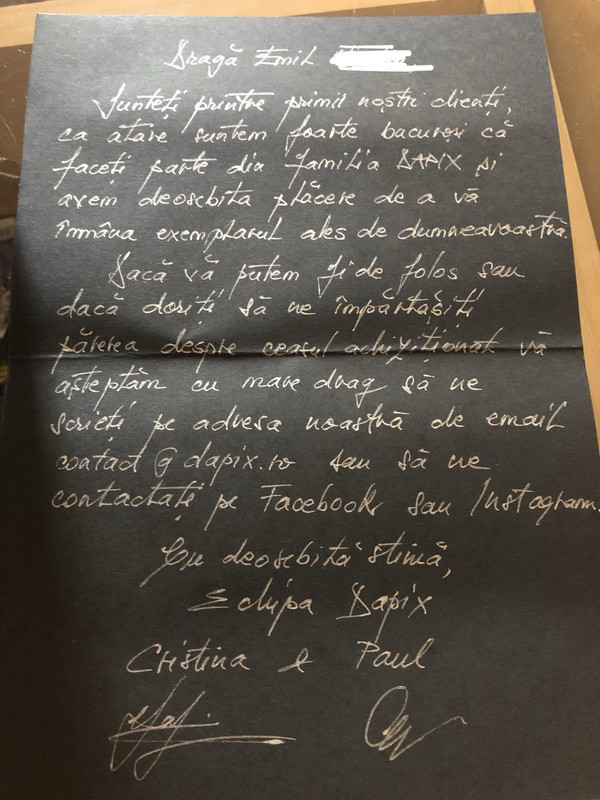 Dragă Emil
Sunteți printre primii noștri clienți,
ca atare suntem foarte bucuroși că
faceți parte din familia DAPIX și
avem deosebita plăcere de a vă
înmâna exemplarul ales de dumneavoastră.
Dacă vă putem fi de folos sau
dacă doriți să ne împărtășiți
părerea despre ceasul achiziționat vă
așteptăm cu mare drag să ne
scrieți pe adresa noastră de email
contact@dapix.ro sau să ne
contactați pe Facebook sau Instagram.
Cu deosebită stimă,
Echipa Dapix
Cristina & Paul